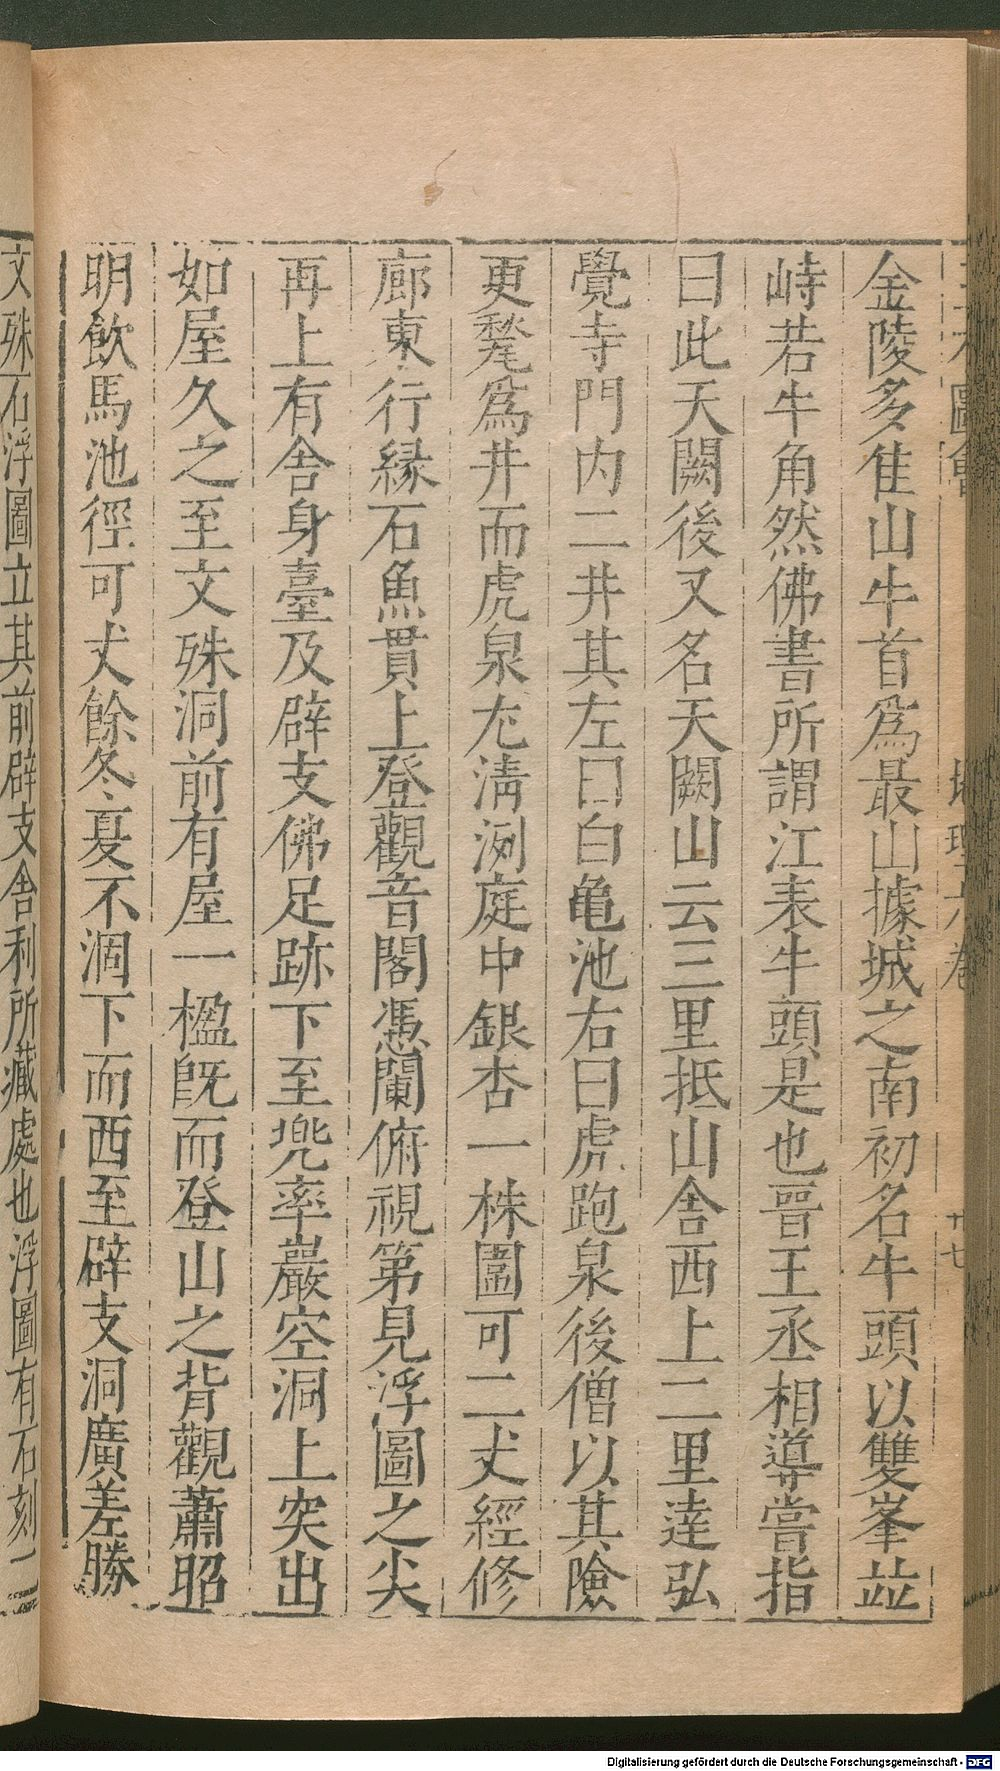 三才圖會
地理六卷
十七
金陵多佳山牛首爲最山據城之南初名牛頭以雙峯並
峙若牛角然佛書所謂江表牛頭是也晉王丞相導嘗指
曰此天闕後又名天闕山云三里抵山舍西上二里達弘
覺寺門内二井其左曰白龜池右曰虎跑泉後僧以其險
更甃爲井而虎泉尤淸洌庭中銀杏一株圍可二丈經修
廊東行縁石魚貫上登觀音閣憑闌俯視第見浮圖之尖
再上有舍身臺及辟支佛足跡下至兠率巖空洞上突出
如屋久之至文殊洞前有屋一楹旣而登山之背觀蕭昭
明飮馬池徑可丈餘冬夏不涸下而西至辟支洞廣差勝
文殊石浮圖立其前辟支舍利所藏處也浮圖有石刻一
Digitalisierung gefördert durch die Deutsche Forschungsgemeinschaft - DFG